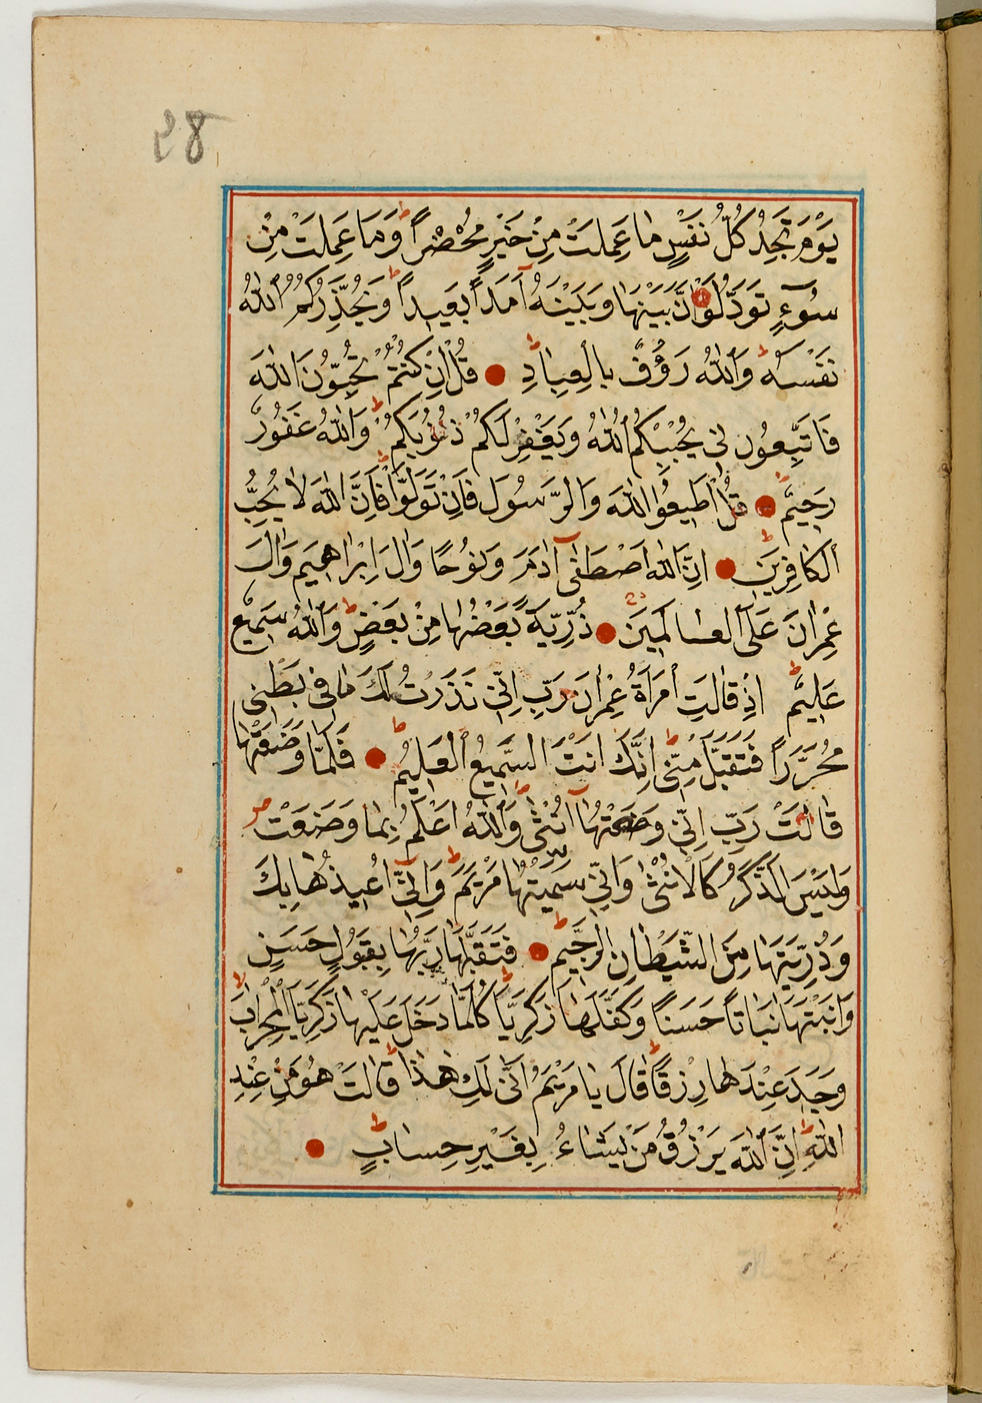 28
يَوْمَ تَجِدُ كُلُّ نَفْسٍ مَا عَمِلَتْ مِنْ خَيْرٍ مُحْضَراً وَمَا عَمِلَتْ مِنْ
سُوٓءٍ تَوَدُّ لَوْ اَنَّ بَيْنَهَا وَبَيْنَهُ اَمَداً بَعِيداً وَيُحَذِّرُكُمُ اللهُ
نَفْسَهُ وَاللهُ رَؤُفٌ بِالْعِبَادِ قُلْ اِنْ كُنْتُمْ تُحِبُّونَ اللهَ
فَاتَّبِعُونِى يُحْبِبْكُمُ اللهُ وَيَغْفِرْ لَكُمْ ذُنُوبَكُمْ وَاللهُ غَفُورٌ
رَحِيمٌ قُلْ اَطِيعُوا اللهَ وَالرَّسُولَ فَاِنْ تَوَلَّوْا فَاِنَّ اللهَ لَا يُحِبُّ
الْكَافِرِينَ اِنَّ اللهَ اصْطَفٰى اٰدَمَ وَنُوحًا وَاٰلَ اِبْرَاهِيمَ وَاٰلَ
عِمْرَانَ عَلَى الْعَالَمِينَ ذُرِّيَّةً بَعْضُهَا مِنْ بَعْضٍ وَاللهُ سَمِيعٌ
عَلِيمٌ اِذْ قَالَتِ امْرَاَةُ عِمْرَانَ رَبِّ اِنِّى نَذَرْتُ لَكَ مَا فِى بَطْنِى
مُحَرَّراً فَتَقَبَّلْ مِنِّى اِنَّكَ اَنْتَ السَّمِيعُ الْعَلِيمُ فَلَمَّا وَضَعَتْهَا
قَالَتْ رَبِّ اِنِّى وَضَعْتُهَا اُنْثٰى وَاللهُ اَعْلَمُ بِمَا وَضَعَتْ
وَلَيْسَ الذَّكَرُ كَالْاُنْثٰى وَاِنِّى سَمَّيْتُهَا مَرْيَمَ وَاِنِّى اُعِيذُهَا بِكَ
وَذُرِّيَّتَهَا مِنَ الشَّيْطَانِ الرَّجِيمِ فَتَقَبَّلَهَا رَبُّهَا بِقَبُولٍ حَسَنٍ
وَاَنْبَتَهَا نَبَاتاً حَسَنًا وَكَفَّلَهَا زَكَرِيَّا كُلَّمَا دَخَلَ عَلَيْهَا زَكَرِيَّا الْمِحْرَابَ
وَجَدَ عِنْدَهَا رِزْقًا قَالَ يَا مَرْيَمُ اَنّٰى لَكِ هٰذَا قَالَتْ هُوَ مِنْ عِنْدِ
اللهِ اِنَّ اللهَ يَرْزُقُ مَنْ يَشَاءُ بِغَيْرِ حِسَابٍ